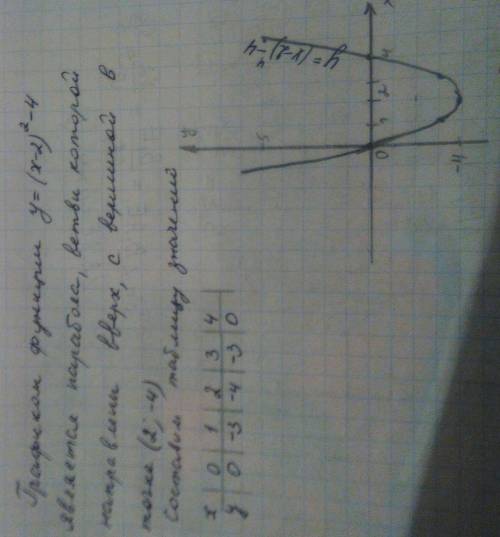 Графиком функции y=(x-2)²-4
является парабола, ветви которой
направлены вверх, с вершиной в
точке (2; -4)
Составим таблицу значений
x | 0 | 1 | 2 | 3 | 4
y | 0 | -3 | -4 | -3 | 0
y
x
5
y=(x-2)²-4
0
1
2
4
-4